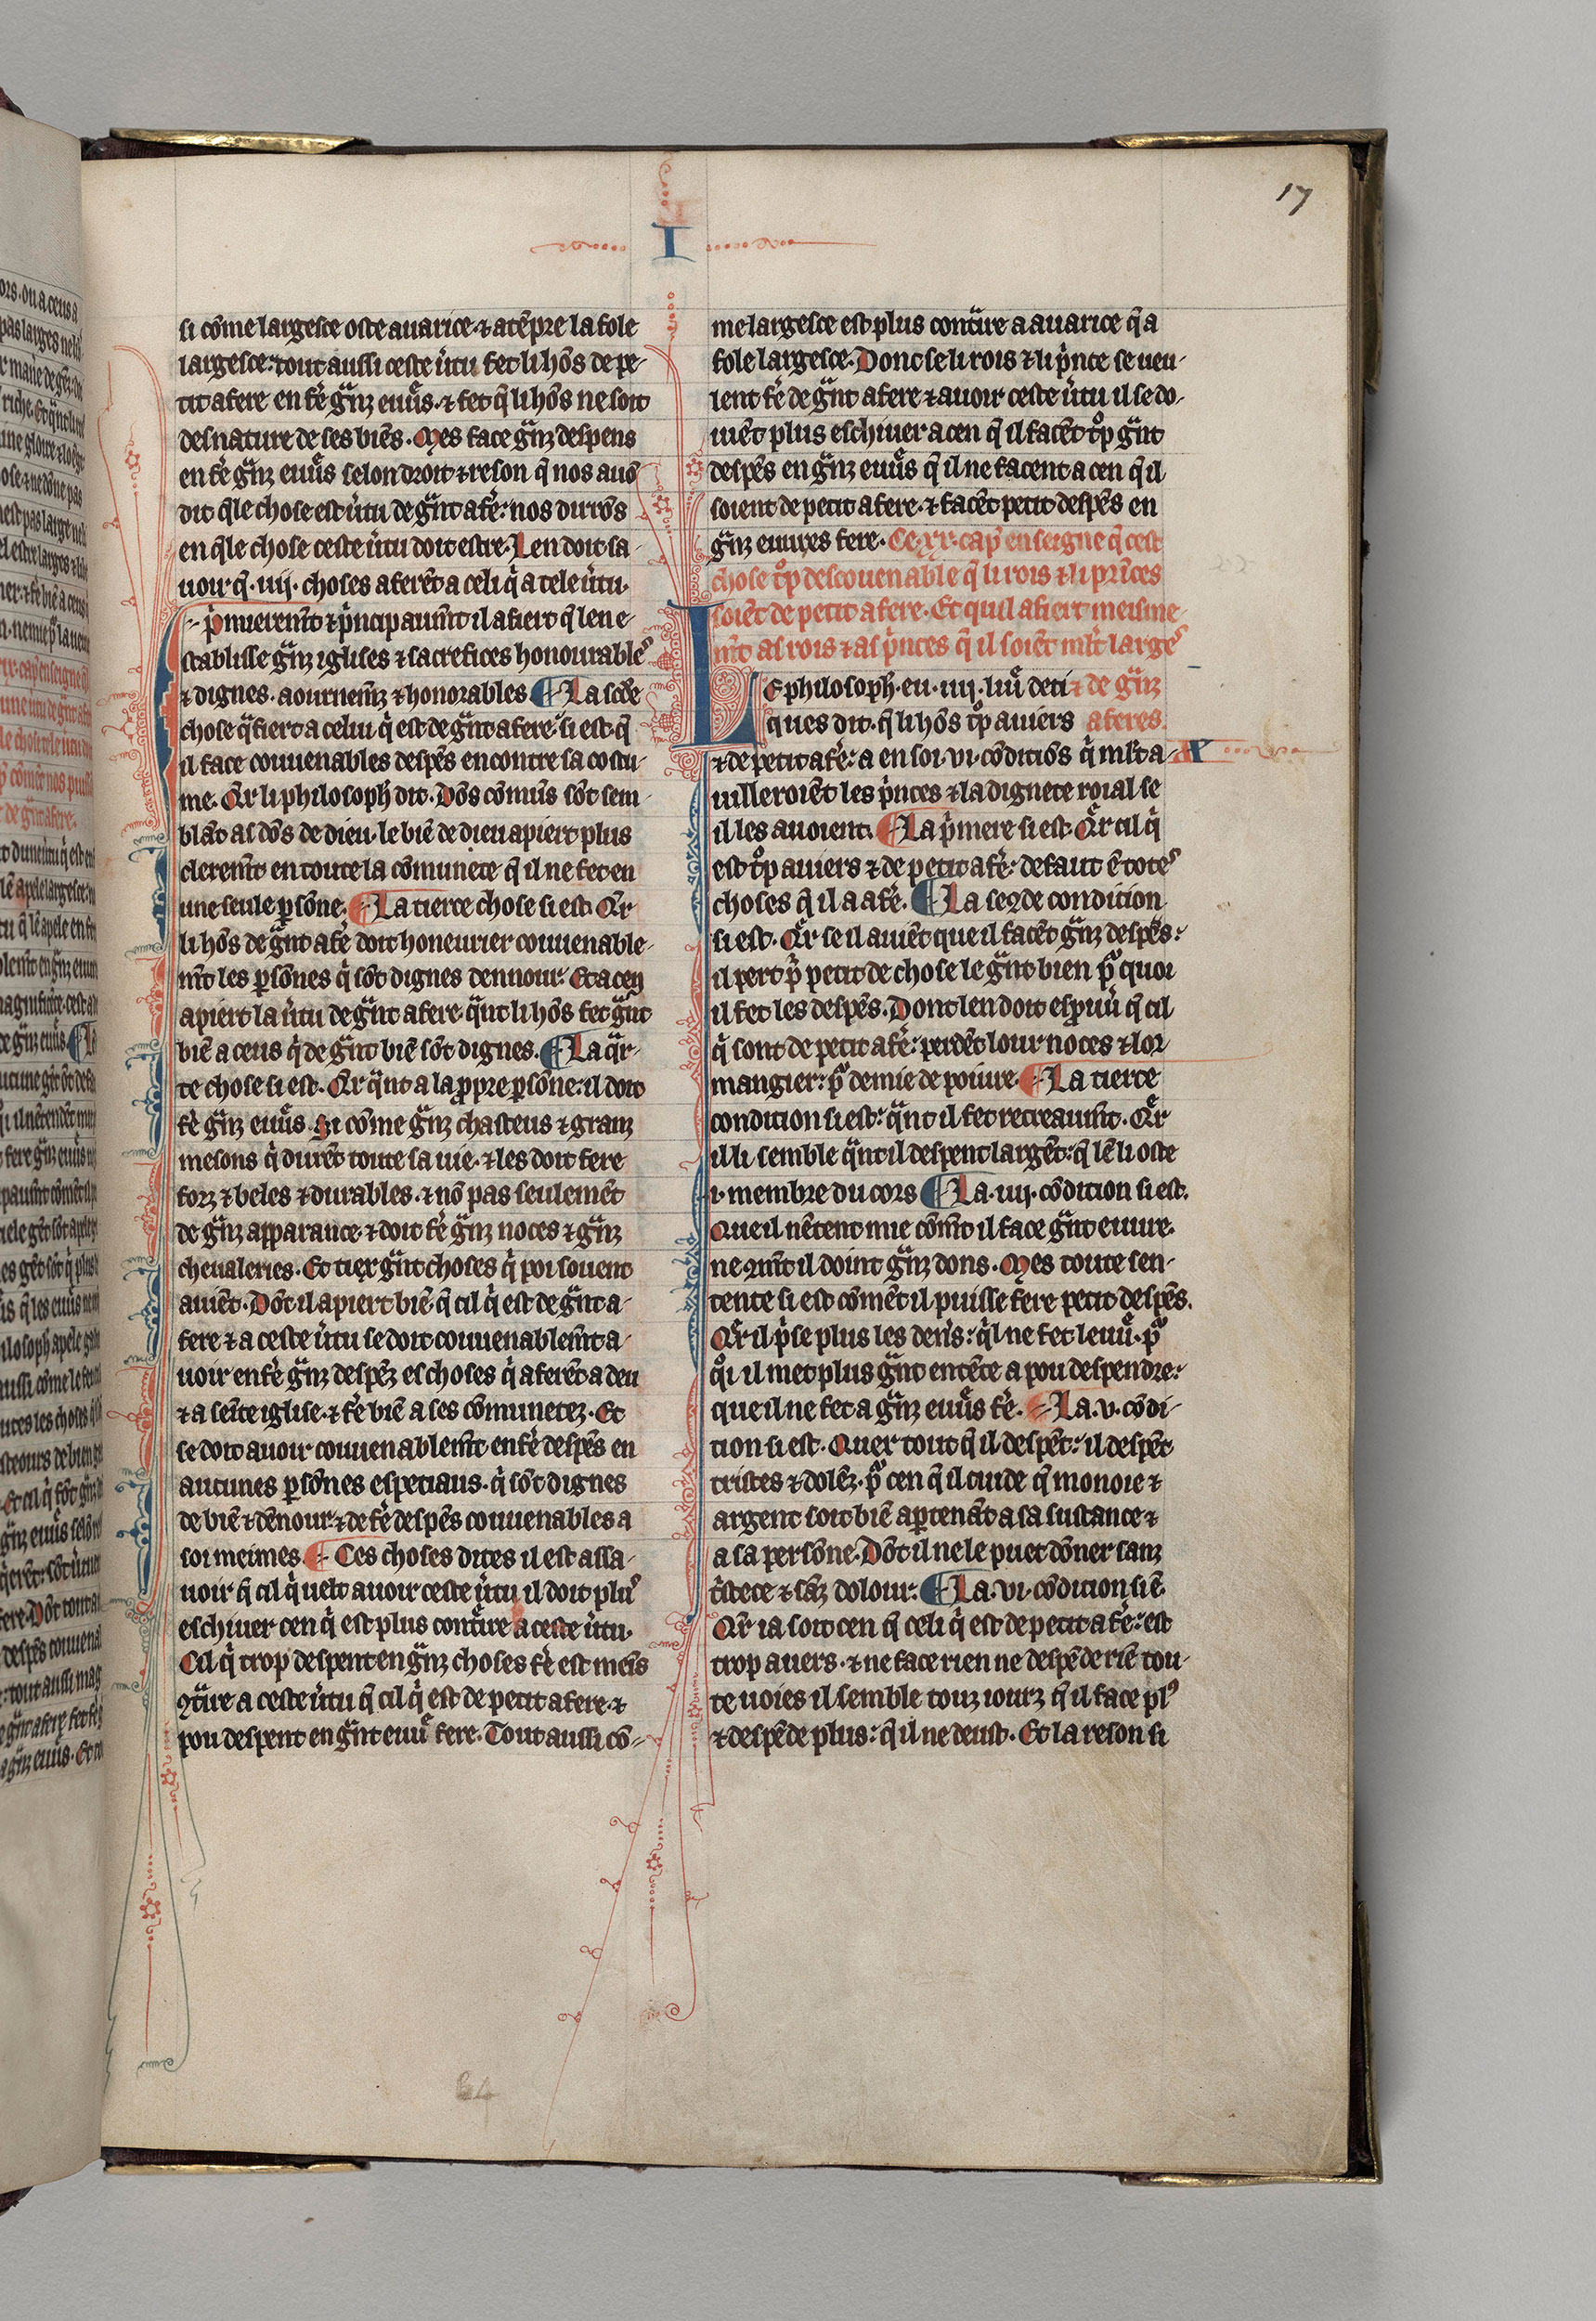 17
I
si cōme largesce oste auarice ⁊ atēpre la fole
largesce: tout aussi ceste ùtu fet li hōs de pe-
tit afere en fè gͣnz euuͤs. ⁊ fet q̄ li hōs ne soit
desnature de ses biēs. Mes face gͣnz despens
en fè gͣnz euuͤs selon droit ⁊ reson q̄ nos auō
dit q̄le chose est ùtu de gͣnt afè: nos dirōs
en q̄le chose ceste ùtu doit estre. Len doit sa-
uoir q̄ .iiij. choses aferēt a celi q̇ a tele ùtu.
p̀mieremt̄ ⁊ p̀ncipaumt̄ il afiert q̄ len e-
stablisse gͣnz iglises ⁊ sacrefices honourables
⁊ dignes. aournemz̄ ⁊ honorables ¶ La scd̄e
chose q̇ fiert a celui q̇ est de gͣnt afere: si est. q̄
il face couuenables despēs encontre sa costu-
me. Qr li philosoph̄ dit. Dōs cōmūs sōt sem-
blāt as dōs de dieu. le biē de dieu apiert plus
cleremt̄ en toute la cōmunete q̄ il ne fet en
une seule ꝑsōne. ¶ La tierce chose si est. Qr
li hōs de gͣnt afè doit honeurier couuenable-
mt̄ les ꝑsōnes q̇ sōt dignes dennour. Et a cen
apiert la ùtu de gͣnt afere. qͣnt li hōs fet gͣnt
biē a ceus q̇ de gͣnt biē sōt dignes. ¶ La qͣr-
te chose si est. Qr qͣnt a la ꝓpre ꝑsōne: il doit
fè gͣnz euuͤs. Si cōme gͣnz chasteus ⁊ granz
mesons q̇ durēt toute sa uie. ⁊ les doit fere
forz ⁊ beles ⁊ durables. ⁊ nō pas seulemēt
de gͣnz apparance. ⁊ doit fè gͣnz noces ⁊ gͣnz
cheualeries. Et tiex gͣnt choses q̇ poi souent
auiēt. Dōt il apiert biē. q̄ cil q̇ est de gͣnt a-
fere ⁊ a ceste ùtu se doit couuenablemt̄ a-
uoir en fè gͣnz despēz es choses q̇ aferēt a deu
⁊ a sēite iglise. ⁊ fè biē a ses cōmunetez. Et
se doit auoir couuenablemt̄ en fè despēs en
aucunes ꝑsōnes especiaus. q̇ sōt dignes
de biē ⁊ dēnour. ⁊ de fè despēs couuenables a
soi meimes. ¶ Ces choses dites il est assa-
uoir q̄ cil q̇ uelt auoir ceste ùtu il doit plus
eschiuer cen q̇ est plus contͣire a ceste ùtu.
Cil q̇ trop despent en gͣnz choses fè est meīs
ꝯtͣire a ceste ùtu q̄ cil q̇ est de petit afere. ⁊
pou despent en gͣnt euuͤ fere. Tout aussi cō-
me largesce est plus contͣire a auarice q̄ a
fole largesce. Donc se li rois ⁊ li p̀nce se ueu-
lent fè de gͣnt afere ⁊ auoir ceste ùtu il se do-
iuēt plus eschiuer a cen q̄ il facēt tͦp gͣnt
despēs en gͣnz euuͤs q̄ il ne facent a cen q̄ il
soient de petit afere. ⁊ facēt petit despēs en
gͣnz euures fere. Ce .xx. cap̄ enseigne q̄ cest
chose tͦp descouenable q̄ li rois ⁊ li prīces
soiēt de petit afere. Et quil afiert meisme-
mt̄ as rois ⁊ as p̀nces q̄ il soiēt ml̄t larges
Le philosoph. eu .iiij. liuͤ deti ⁊ de gͣnz
ques dit. q̄ li hōs tͦp auiers aferes.
⁊ de petit afè: a en soi .vi. cōditiōs q̇ ml̄t a-
X
uilleroiēt les p̀nces ⁊ la dignete roial se
il les auoient. ¶ La p̀mere si est. Qͣr cil q̇
est tͦp auiers ⁊ de petit afè: defaut ē totes
choses q̄ il a a fè. ¶ La secde condition
si est. Qͣr se il auiēt que il facēt gͣnz despēs:
il pert p̄ petit de chose le gͣnt bien pͦ quoi
il fet les despēs. Dont len doit esprouuͤ q̄ cil
q̇ sont de petit afè: perdēt lour noces ⁊ lor
mangier: pͦ demie de poiure. ¶ La tierce
condition si est: qͣnt il fet retreaumt̄. Qͣr
il li semble qͣnt il despent largēt: q̄ lē li oste
.i. membre du cors ¶ La .iiij. cōdition si est.
Que il nētent mie cōmt̄ il face gͣnt euure.
ne ꝯmt̄ il doint gͣnz dons. Mes toute sen-
tente si est cōmēt il puisse fere petit despēs.
Qͣr il p̀se plus les den̄s: q̇l ne fet leuuͤ. pͦ
qͦi il met plus gͣnt entēte a pou despendre:
que il ne fet a gͣnz euuͤs fè. ¶ La .v. cōdi-
tion si est. Quer tout q̄ il despēt: il despēt
tristes ⁊ dolēz. pͦ cen q̄ il cuide q̄ monoie ⁊
argent soit biē aꝑtenāt a sa sustance ⁊
a sa persōne. Dōt il ne le puet dōner sanz
tͥstece ⁊ sāz dolour. ¶ La .vi. cōdition si ē.
Qr ia soit cen q̄ celi q̇ est de petit afè: est
trop auers. ⁊ ne face rien ne despēde riē tou-
te uoies il semble touz iourz q̄ il face plꝰ
⁊ despēde plus: q̄ il ne deust. Et la reson si
64